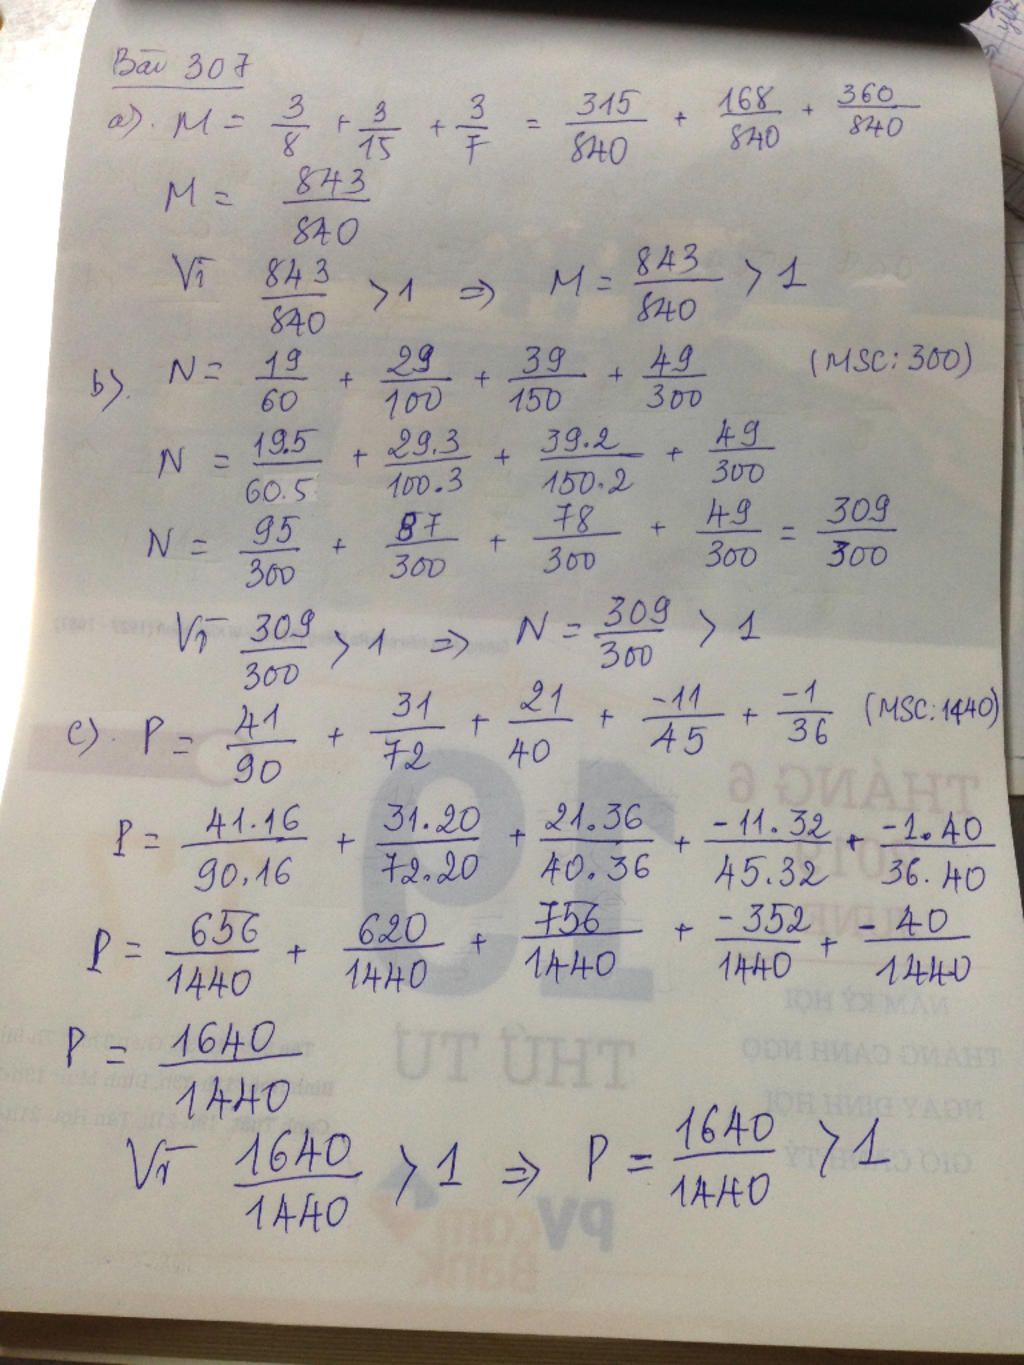 Bài 307
a). M = 3/8 + 3/15 + 3/7 = 315/840 + 168/840 + 360/840
M = 843/840
Vì 843/840 > 1 => M = 843/840 > 1
b). N = 19/60 + 29/100 + 39/150 + 49/300 (MSC: 300)
N = 19.5/60.5 + 29.3/100.3 + 39.2/150.2 + 49/300
N = 95/300 + 87/300 + 78/300 + 49/300 = 309/300
Vì 309/300 > 1 => N = 309/300 > 1
c). P = 41/90 + 31/72 + 21/40 + -11/45 + -1/36 (MSC: 1440)
P = 41.16/90.16 + 31.20/72.20 + 21.36/40.36 + -11.32/45.32 + -1.40/36.40
P = 656/1440 + 620/1440 + 756/1440 + -352/1440 + -40/1440
P = 1640/1440
Vì 1640/1440 > 1 => P = 1640/1440 > 1
THÁNG 6
2019
JUNE
19
THỨ TƯ
NĂM KỶ HỢI
THÁNG CANH NGỌ
NGÀY ĐINH HỢI
PVcom
Bank